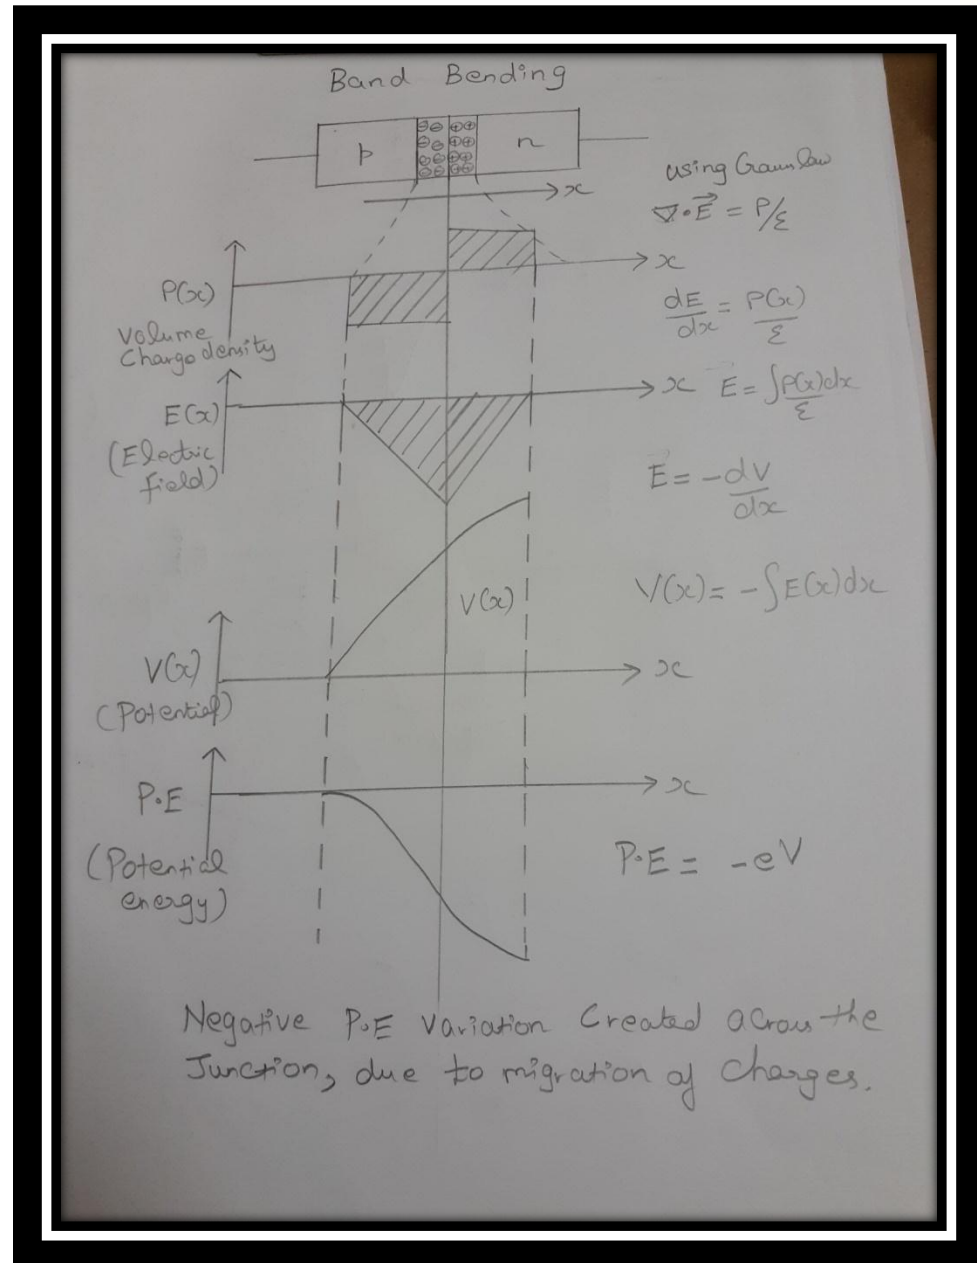 Band Bending
p
n
x
using Gauss law
∇·E⃗ = ρ/ε
ρ(x)
x
Volume
Charge density
dE/dx = ρ(x)/ε
E(x)
x
E = ∫ρ(x)dx/ε
(Electric
field)
E = -dV/dx
V(x)
V(x) = -∫E(x)dx
V(x)
x
(Potential)
P.E
x
(Potential
energy)
P.E = -eV
Negative P.E Variation Created across the
Junction, due to migration of Charges.